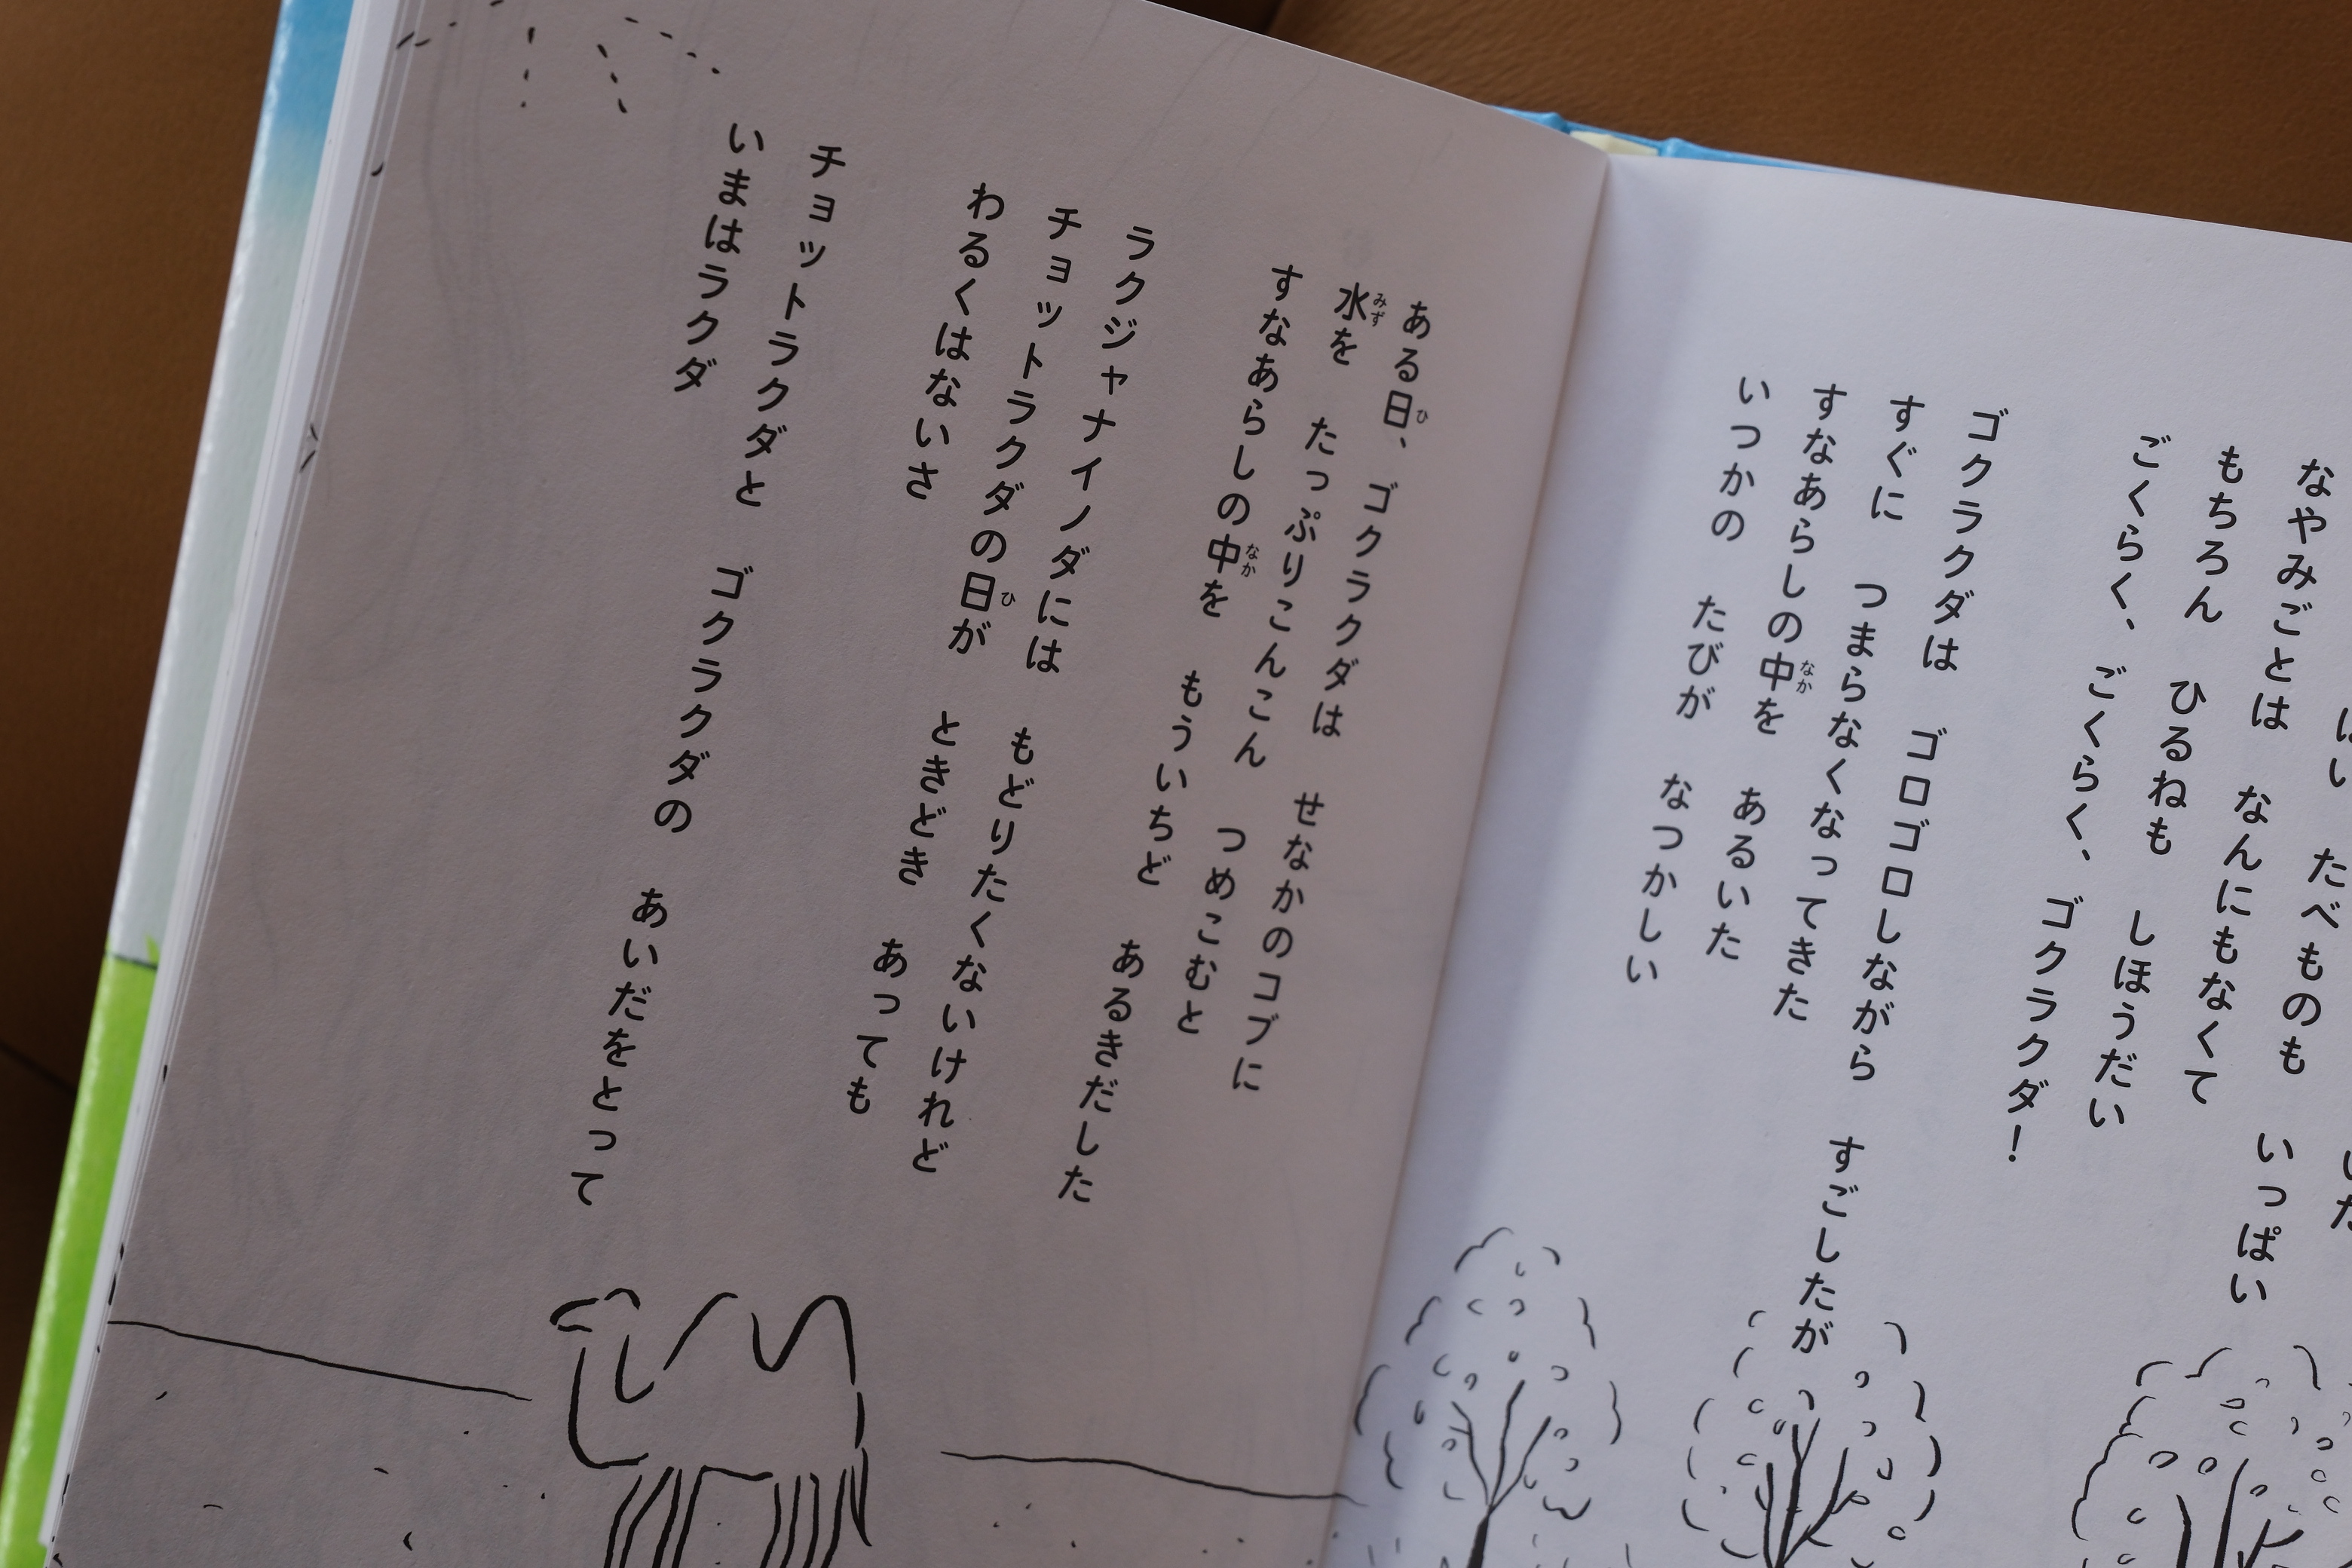 たべものも　いっぱい
なやみごとは　なんにもなくて
もちろん　ひるねも　しほうだい
ごくらく、ごくらく、ゴクラクダ！
ゴクラクダは　ゴロゴロしながら　すごしたが
すぐに　つまらなくなってきた
すなあらしの中を　あるいた
いつかの　たびが　なつかしい
ある日、ゴクラクダは　せなかのコブに
水を　たっぷりこんこん　つめこむと
すなあらしの中を　もういちど　あるきだした
ラクジャナイノダには　もどりたくないけれど
チョットラクダの日が　ときどき　あっても
わるくはないさ
チョットラクダと　ゴクラクダの　あいだをとって
いまはラクダ